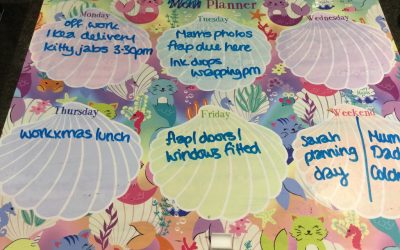 Planner
Monday
off work
Ikea delivery
kitty jabs 3-30pm
Tuesday
Mam's photos
flap due here
Ink drops
wrapping pm
Wednesday
Thursday
work xmas lunch
Friday
flap/doors/
windows fitted
Weekend
Sarah
planning
day
Mum
Dad